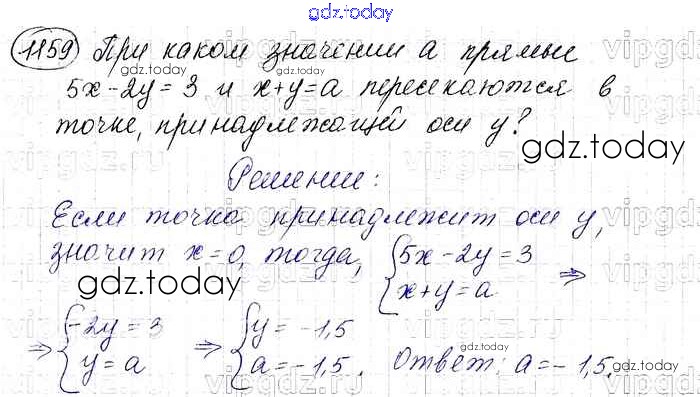 gdz.today
1159 При каком значении a прямые
5x-2y=3 и x+y=a пересекаются в
точке, принадлежащей оси y?
gdz.today
Решение:
Если точка принадлежит оси y,
значит x=0, тогда, {5x-2y=3
x+y=a ⇒
gdz.today
⇒ {-2y=3
y=a ⇒ {y=-1,5
a=-1,5. Ответ: a=-1,5.
gdz.today
gdz.today
gdz.today
vipgdz.ru